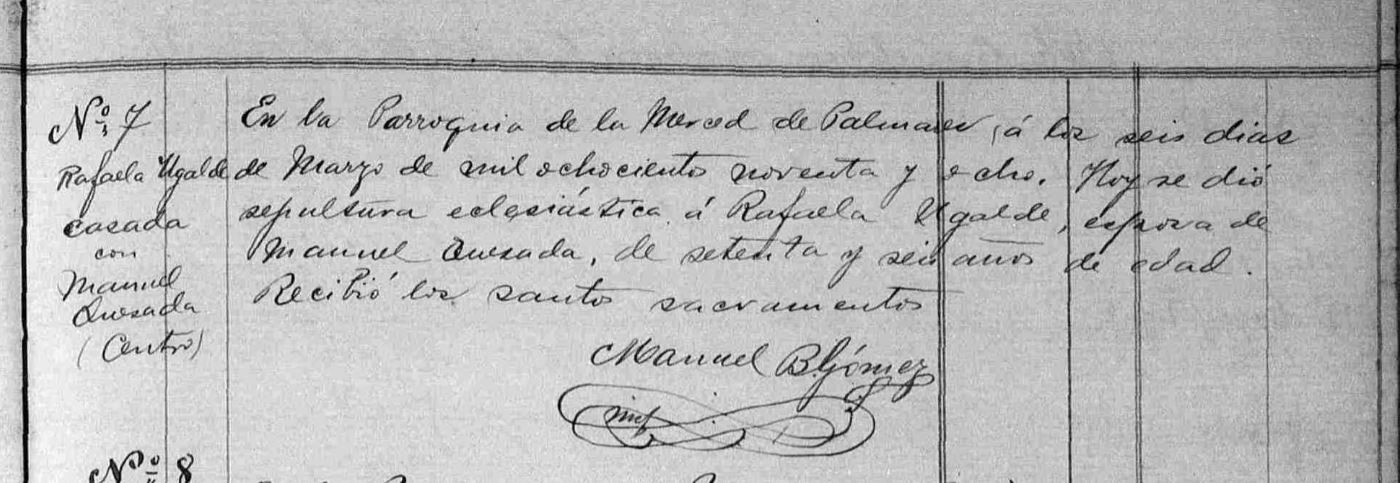 Nº 7
Rafaela Ugalde
casada
con
Manuel
Quesada
(Centro)
En la Parroquia de la Merced de Palmares, á los seis dias
de Marzo de mil ochociento noventa y ocho. Hoy se dió
sepultura eclesiástica á Rafaela Ugalde, esposa de
Manuel Quesada, de setenta y seis años de edad.
Recibió los santos sacramentos
Manuel B. Gómez
Nº 8